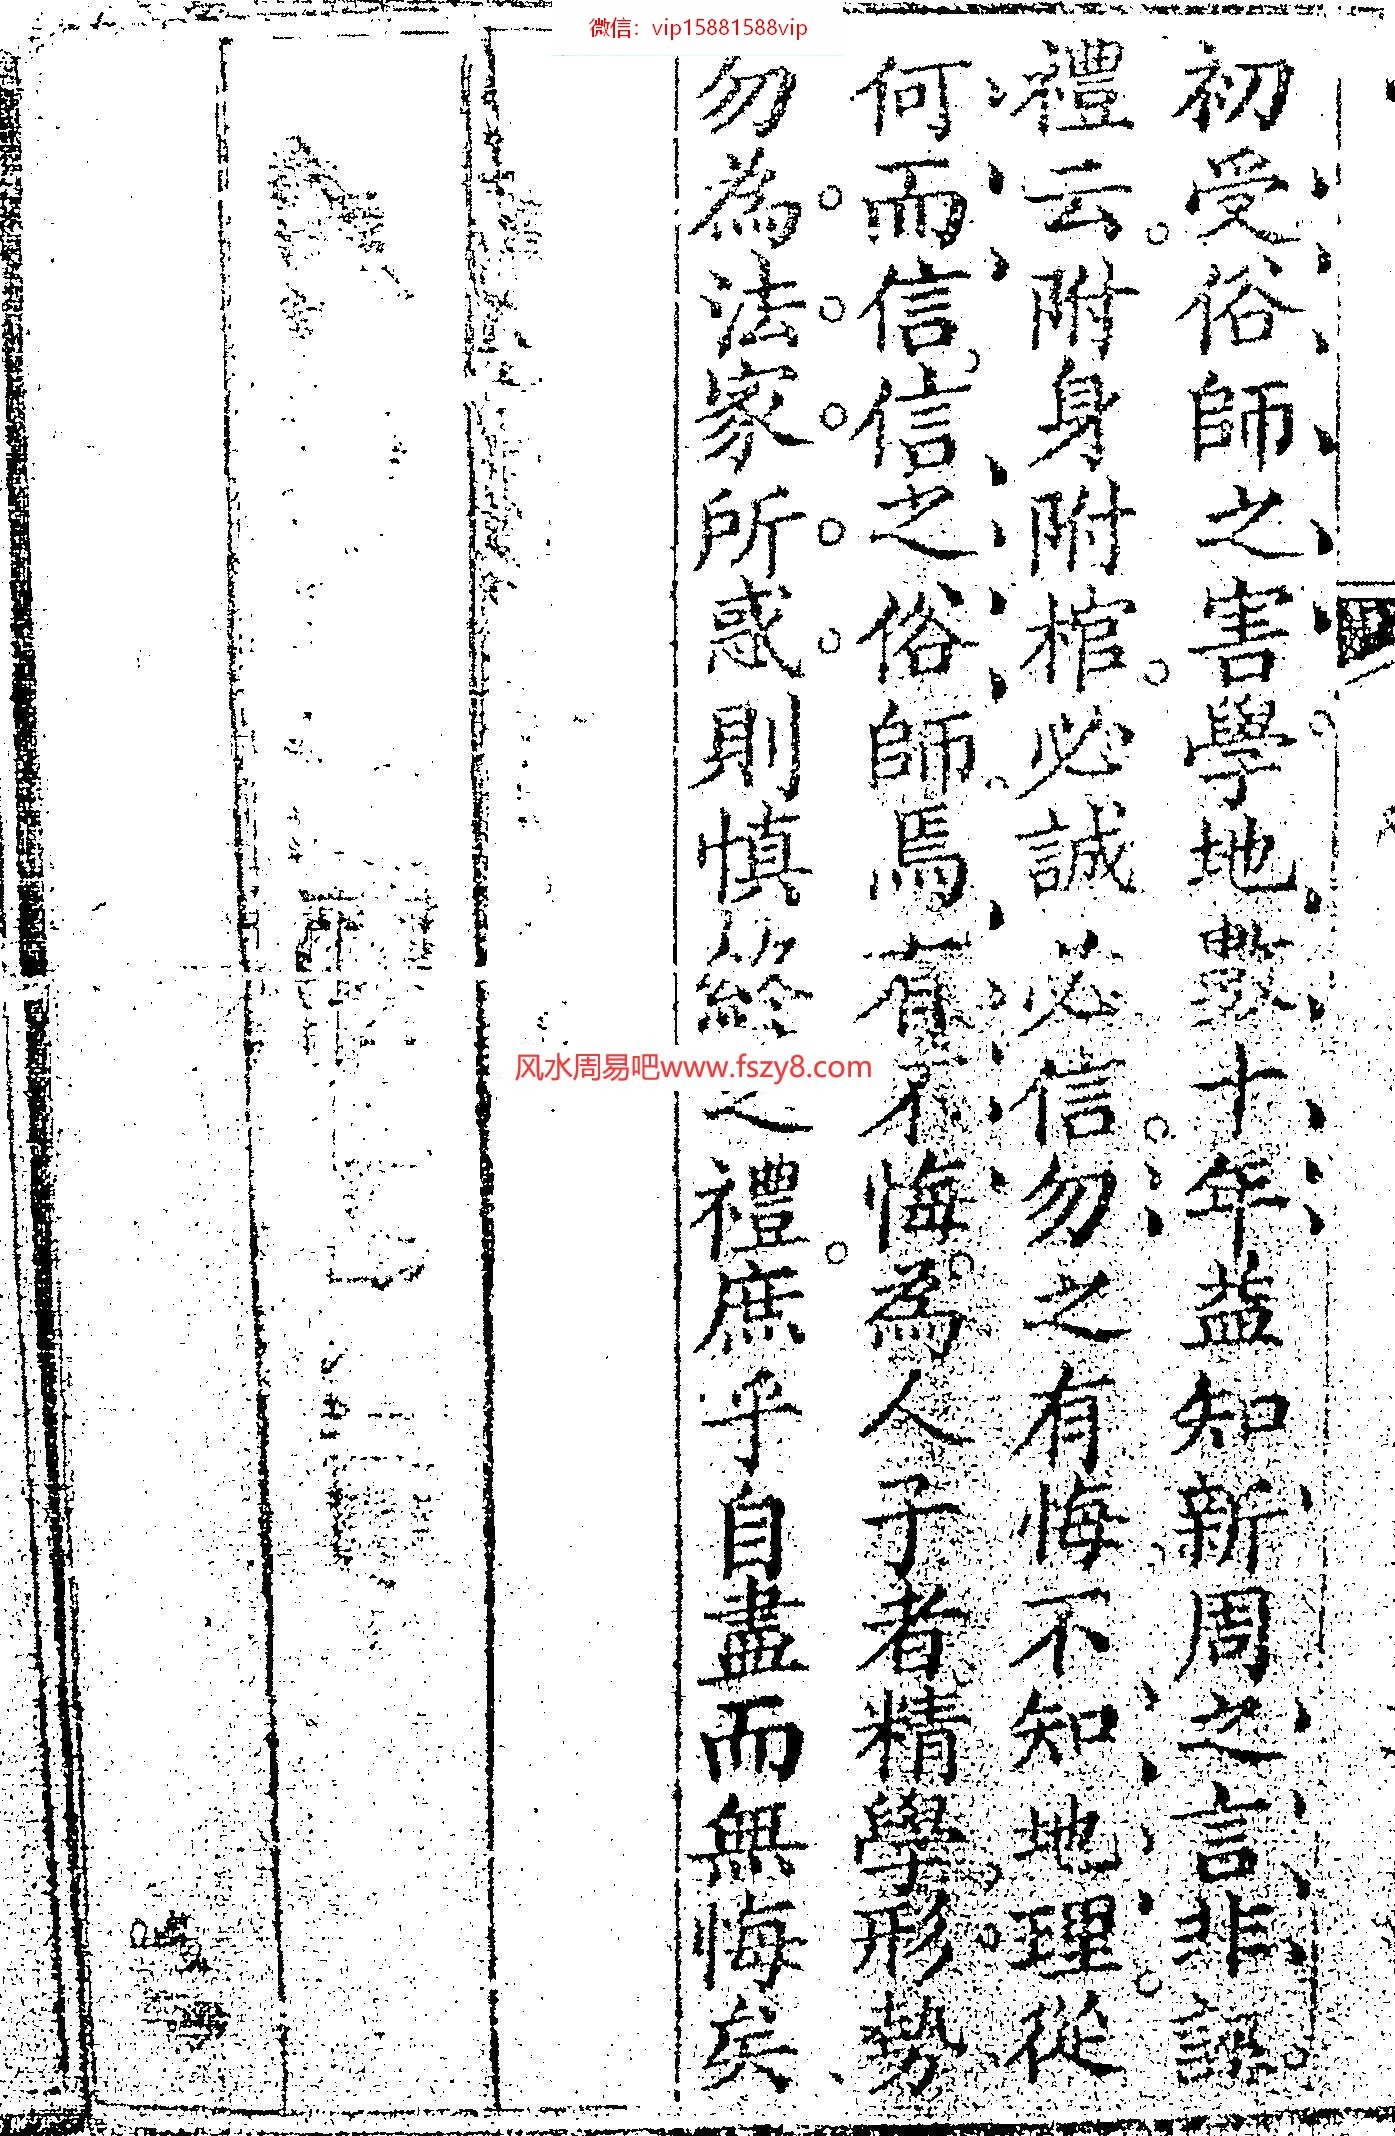 微信：vip15881588vip
初受俗師之害學地數十年益知新周之言非誣
禮云附身附棺必誠必信勿之有悔不知地理從
何而信信之俗師焉有不悔為人子者精學形勢
勿為法家所惑則慎終之禮庶乎自盡而無悔矣
风水周易吧www.fszy8.com